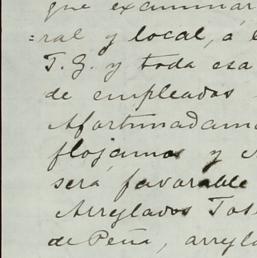 que examinar
=ral y local, á l
T. G. y toda esa
de empleados
Afortunadame
flojamos y
será favorable
Arreglados Tos
de Peña, arregla